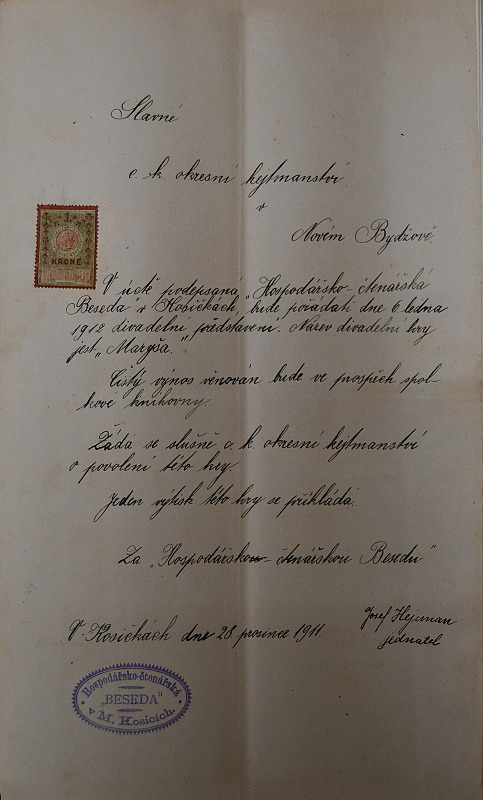 Slavné
c. k. okresní hejtmanství
v
Novém Bydžově.
1
KRONE
V úctě podepsaná „Hospodářsko-čtenářská
Beseda" v Kosičkách, bude pořádati dne 6 ledna
1912 divadelní představení. Název divadelní hry
jest „Maryša."
Čistý výnos věnován bude ve prospěch spol-
kové knihovny.
Žádá se slušně c. k. okresní hejtmanství
o povolení této hry.
Jeden výtisk této hry se přikládá.
Za „Hospodářskou čtenářskou Besedu"
V Kosičkách dne 28 prosince 1911.
Josef Hejcman
jednatel
Hospodářsko-čtenářská
„BESEDA"
v M. Kosicích.